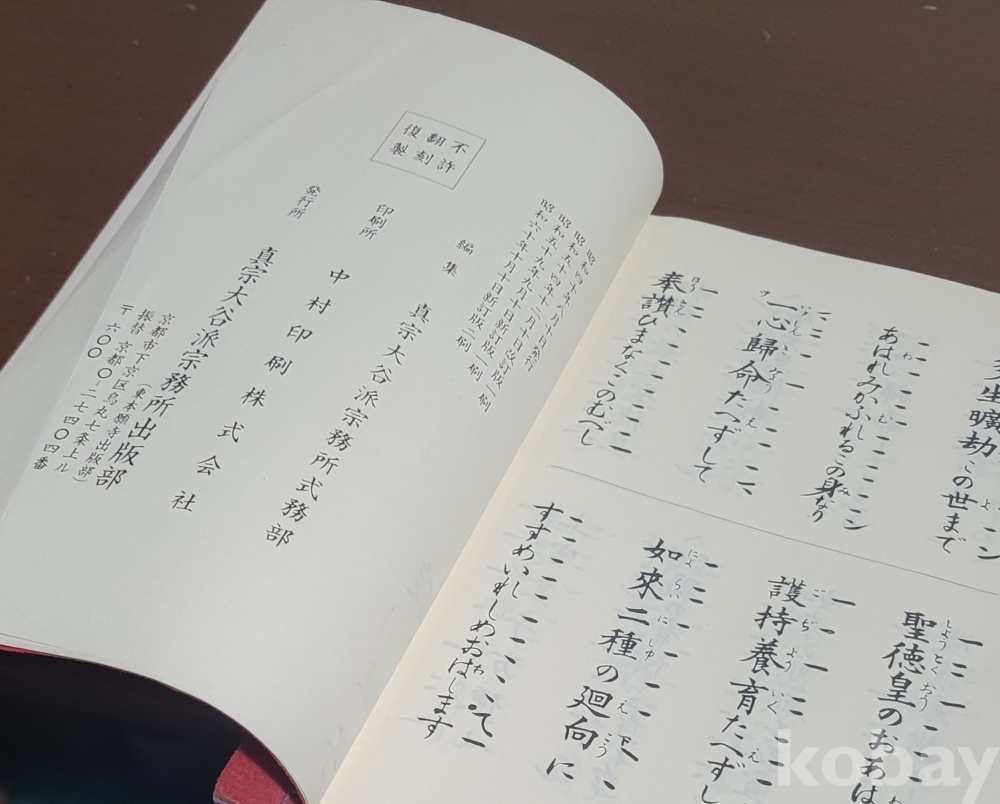 多生曠劫この世まで
あはれみかふれるこの身なり
一心歸命たへずして
奉讃ひまなくこのむべし
聖徳皇のおあは
護持養育たへずし
如來二種の廻向に
すすめいれしめおはします
不許
翻刻
復製
昭和四十年八月十日発行
昭和五十四年十二月十日改訂版一刷
昭和五十九年九月十日新訂版一刷
昭和六十年十月十日新訂版二刷
編集 真宗大谷派宗務所式務部
印刷所 中村印刷株式会社
発行所 真宗大谷派宗務所出版部
(東本願寺出版部)
京都市下京区烏丸七条上ル
kobay